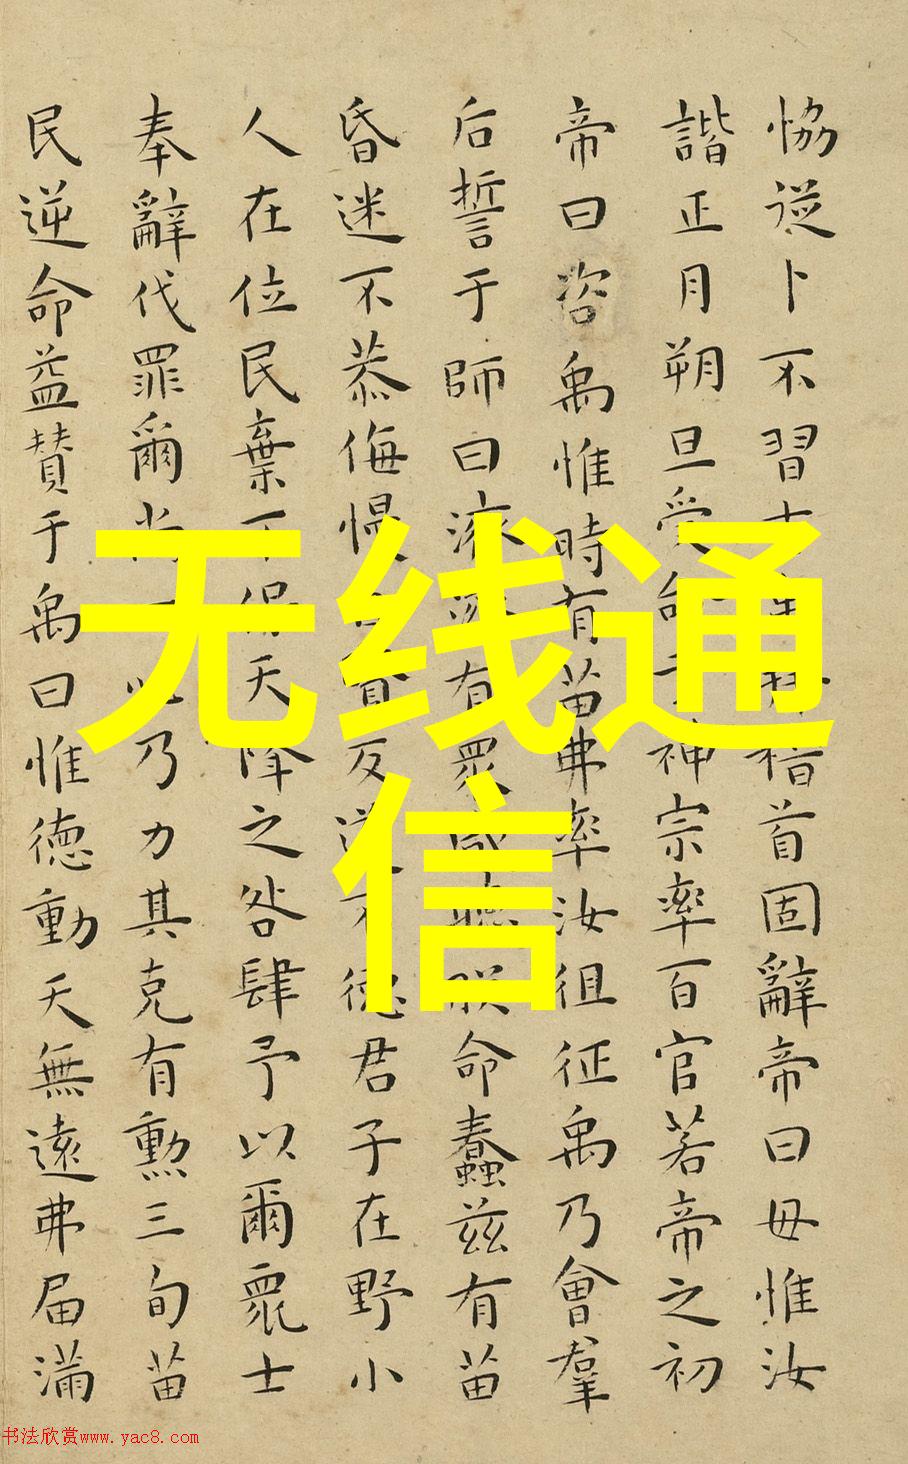 恊從卜不習吉禹拜稽首固辭帝曰毋惟汝
諧正月朔旦受命于神宗率百官若帝之初
帝曰咨禹惟時有苗弗率汝徂征禹乃會羣
后誓于師曰濟濟有眾咸聽朕命蠢茲有苗
昏迷不恭侮慢自賢反道不德君子在野小
人在位民棄不保天降之咎肆予以爾眾士
奉辭伐罪爾尚一心乃力其克有勳三旬苗
民逆命益贊于禹曰惟德動天無遠弗届滿
无线通
信
书法欣赏www.yac8.com